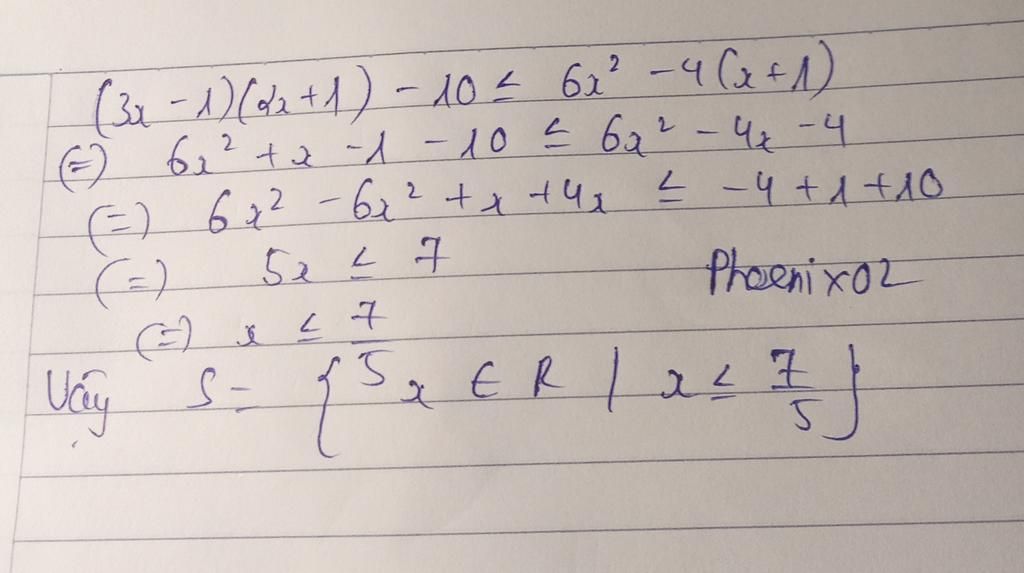 (3x - 1)(2x + 1) - 10 ≤ 6x² - 4(x + 1)
(=) 6x² + x - 1 - 10 ≤ 6x² - 4x - 4
(=) 6x² - 6x² + x + 4x ≤ -4 + 1 + 10
(=) 5x ≤ 7
Phoenix02
(=) x ≤ 7/5
Vậy S = {x ∈ R | x ≤ 7/5}